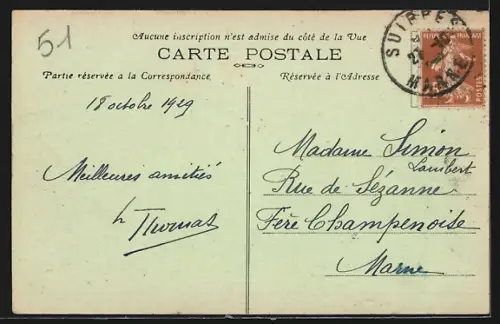 51
Aucune inscription n'est admise du côté de la Vue
CARTE POSTALE
Partie réservée a la Correspondance
Réservée à l'Adresse
SUIPPES
MARNE
POSTES
18 octobre 1929
Meilleures amitiés
Thomas
Madame Simon
Lambert
Rue de Sézanne
Fère Champenoise
Marne